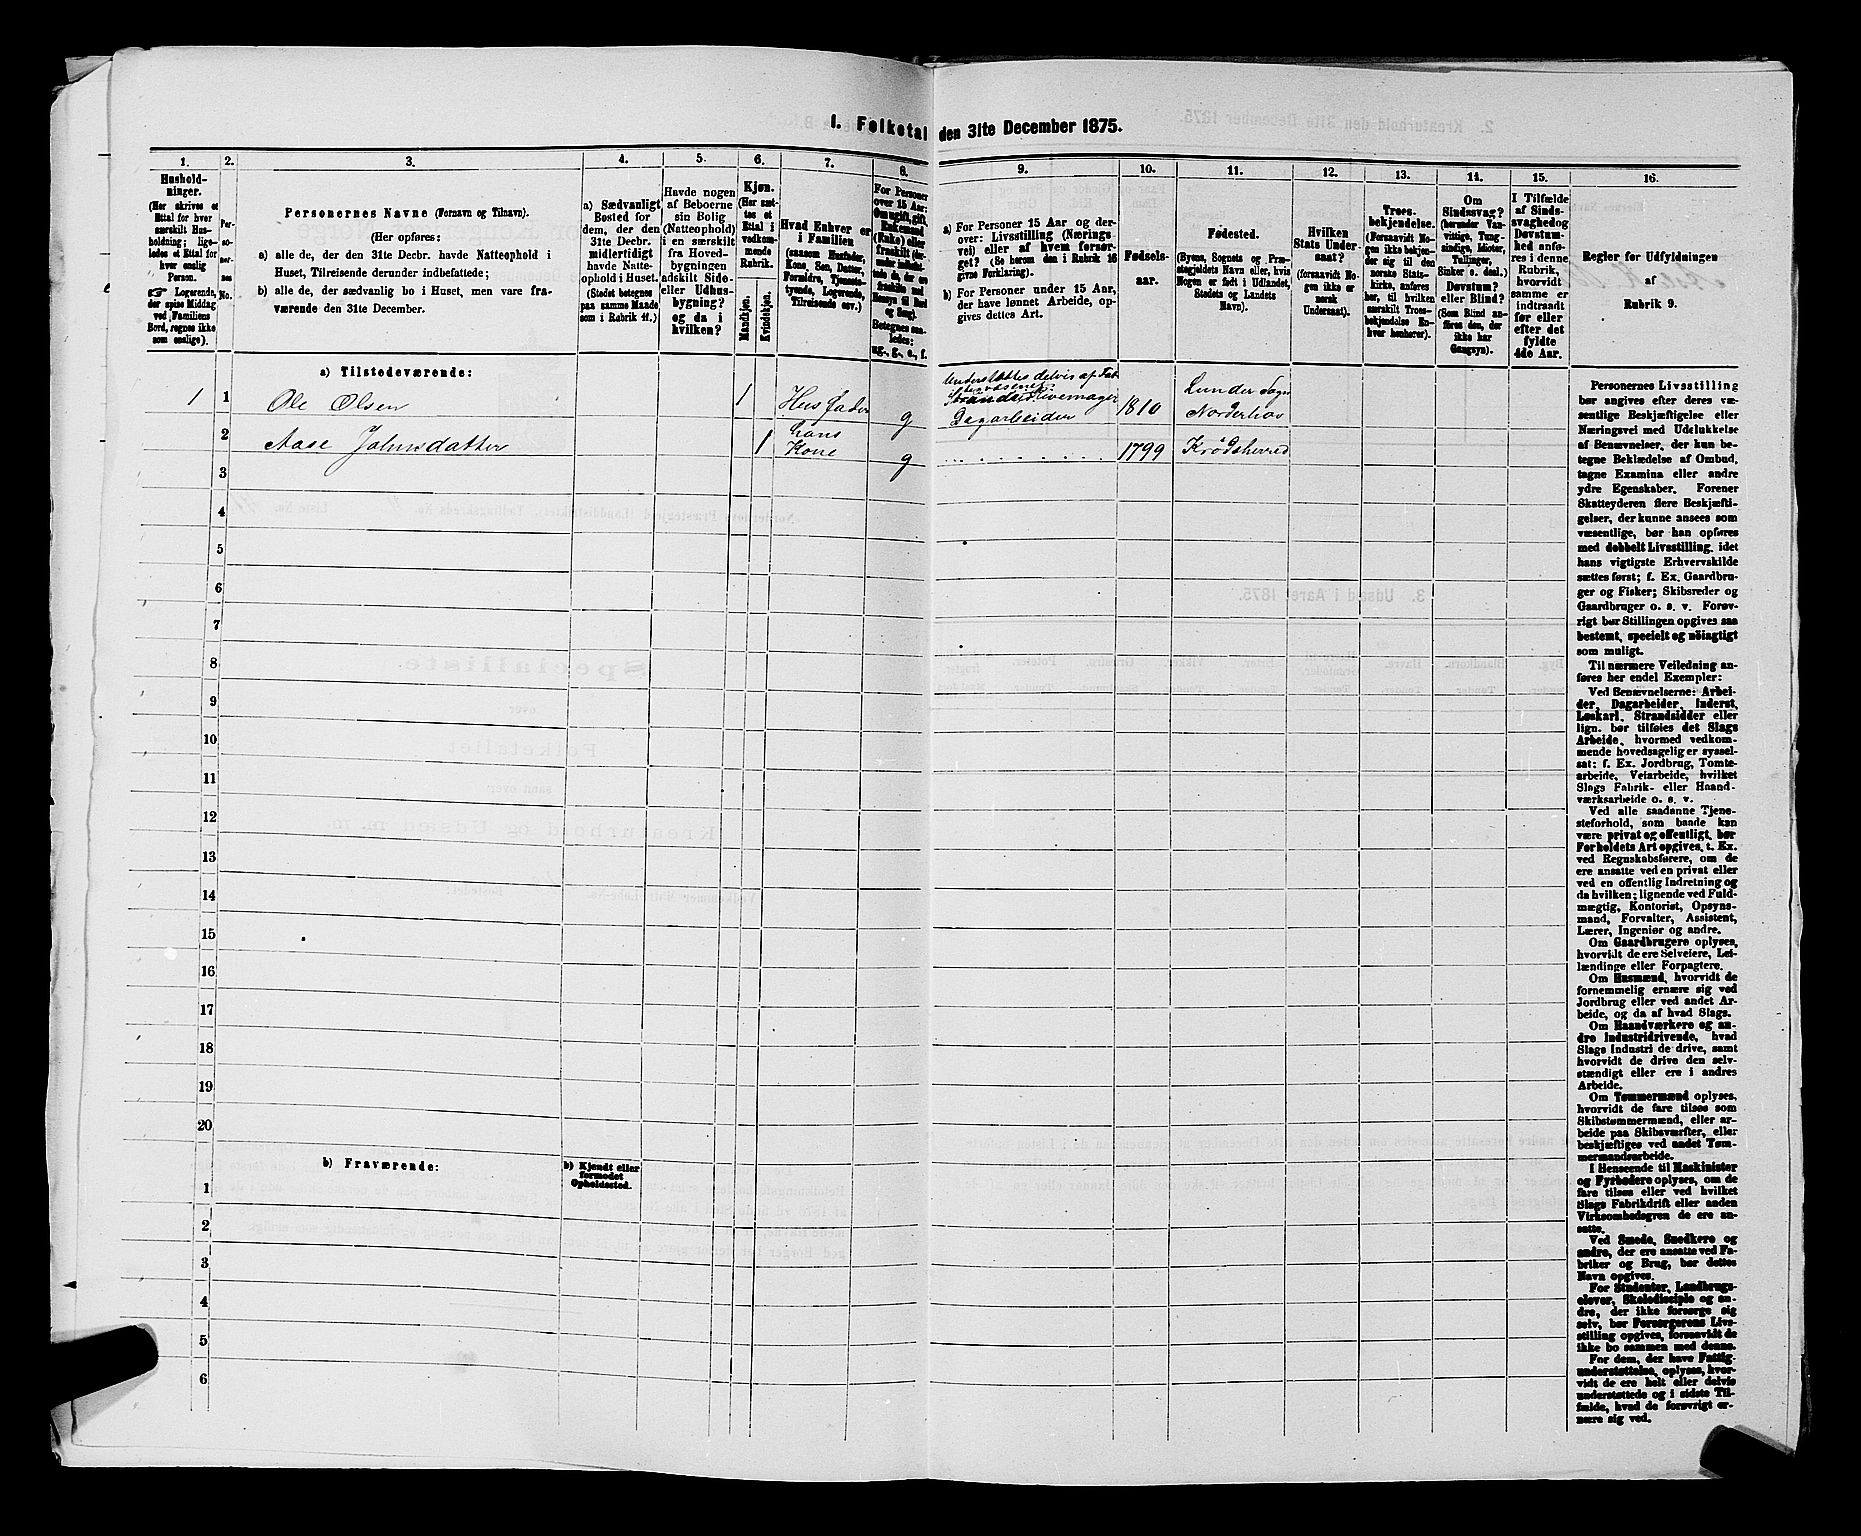 1. Folketal den 31te December 1875.
1. 2. 3. 4. 5. 6. 7. 8. 9. 10. 11. 12. 13. 14. 15. 16.
Hushold-
ninger.
(Her skrives et
Ettal for hver
særskilt Hus-
holdning; lige-
ledes et Ettal for
hver enslig
Person.
☞ Logerende,
der spise Middag
ved Familiens
Bord, regnes ikke
som enslige).
Per-
so-
ner-
nes
No.
Personernes Navne (Fornavn og Tilnavn).
(Her opføres:
a) alle de, der den 31te Decbr. havde Natteophold i
Huset, Tilreisende derunder indbefattede;
b) alle de, der sædvanlig bo i Huset, men vare fra-
værende den 31te December.
a) Sædvanligt
Bosted for
dem, der den
31te Decbr.
midlertidigt
havde Natte-
ophold i Huset.
(Stedet betegnes
paa samme Maade
som i Rubrik 11.)
Havde nogen
af Beboerne
sin Bolig
(Natteophold)
i en særskilt
fra Hoved-
bygningen
adskilt Side-
eller Udhus-
bygning?
og da i
hvilken?
Kjøn.
(Her sæt-
tes et
Ettal i
vedkom-
mende
Rubrik.
Mandkjøn.
Kvindekjøn.
Hvad Enhver er
i Familien
(saasom Husfader,
Kone, Søn, Datter,
Forældre, Tjeneste-
tyende, Logerende,
Tilreisende osv.)
For Personer
over 15 Aar:
Om ugift, gift,
Enkemand
(Enke) eller
fraskilt (der-
under indbefat-
tede de, der ere
fraskilte med
Hensyn til Bord
og Seng).
Betegnes saa-
ledes:
ug., g., e., f.
a) For Personer 15 Aar og der-
over: Livsstilling (Nærings-
vei) eller af hvem forsør-
get? (Se herom den i Rubrik 16
givne Forklaring).
b) For Personer under 15 Aar,
der have lønnet Arbeide, op-
gives dettes Art.
Fødsels-
aar.
Fødested.
(Byens, Sognets og Præ-
stegjeldets Navn eller, hvis
Nogen er født i Udlandet,
Stedets og Landets
Navn).
Hvilken
Stats Under-
saat?
(forsaavidt No-
gen ikke er
norsk
Undersaat).
Troes-
bekjendelse.
(Forsaavidt No-
gen ikke beken-
der sig til den
norske Stats-
kirke, anføres
her, til hvilken
særskilt Troes-
bekjendelse En-
hver henhører).
Om
Sindssvag?
(herunder Van-
vittige, Tung-
sindige, Idioter,
Tullinger,
Sinker o. desl.)
Døvstum?
eller Blind?
(Som Blind an-
føres den, der
ikke har
Gangsyn).
I Tilfælde
af Sinds-
svaghed og
Døvstum-
hed anfø-
res i denne
Rubrik,
hvorvidt
samme er
indtraadt
før eller
efter det
fyldte
4de Aar.
Regler for Udfyldningen
af
Rubrik 9.
a) Tilstedeværende:
Understøttes delvis af Fat-
tigvæsenet.
1 1 Ole Olsen 1 Husfader g Dagarbeider 1810 Lunder Sogn
Norderhov
2 Aase Johnsdatter 1 hans
Kone g 1799 Krødsherred
3
4
5
6
7
8
9
10
11
12
13
14
15
16
17
18
19
20
b) Fraværende:
b) Kjendt eller
formodet
Opholdssted.
1
2
3
4
5
6
Personernes Livsstilling
bør angives efter deres væ-
sentlige Beskjæftigelse eller
Næringsvei med Udelukkelse
af Benævnelser, der kun be-
tegne Beklædelse af Ombud,
tagne Examina eller andre
ydre Egenskaber. Forener
Skatteyderen flere Beskjæfti-
gelser, der kunne ansees som
væsentlige, bør han opføres
med dobbelt Livsstilling, idet
hans vigtigste Erhvervskilde
sættes først; f. Ex. Gaardbru-
ger og Fisker; Skibsreder og
Gaardbruger o. s. v. Forøv-
rigt bør Stillingen opgives saa
bestemt, specielt og nöiagtigt
som muligt.
Til nærmere Veiledning an-
føres her endel Exempler:
Ved Benævnelserne: Arbei-
der, Dagarbeider, Inderst,
Løskarl, Strandsidder eller
lign. bør tilføies det Slags
Arbeide, hvormed vedkom-
mende hovedsagelig er syssel-
sat: f. Ex. Jordbrug, Tomte-
arbeide, Veiarbeide, hvilket
Slags Fabrik- eller Haand-
værksarbeide o. s. v.
Ved alle saadanne Tjene-
steforhold, som baade kan
være privat og offentligt, bør
Forholdets Art opgives, t. Ex.
ved Regnskabsførere, om de
ere ansatte ved en privat eller
ved en offentlig Indretning og
da hvilken; lignende ved Fuld-
mægtig, Kontorist, Opsyns-
mand, Forvalter, Assistent,
Lærer, Ingeniør og andre.
Om Gaardbrugere oplyses,
hvorvidt de ere Selveiere, Lei-
lændinge eller Forpagtere.
Om Husmænd, hvorvidt de
fornemmelig ernære sig ved
Jordbrug eller ved andet Ar-
beide, og da af hvad Slags.
Om Haandværkere og an-
dre Industridrivende, hvad
Slags Industri de drive, samt
hvorvidt de drive den selv-
stændigt eller ere i andres
Arbeide.
Om Tømmermænd oplyses,
hvorvidt de fare tilsøs som
Skibstømmermænd, eller ar-
beide paa Skibsværfter, eller
beskjæftiges ved andet Tøm-
mermandsarbeide.
I Henseende til Maskinister
og Fyrbødere oplyses, om de
fare tilsøs eller ved hvilket
Slags Fabrikdrift eller anden
Virksomhedsgren de ere an-
satte.
Ved Smede, Snedkere og
andre, der ere ansatte ved Fa-
briker og Brug, bør dettes
Navn opgives.
For Studenter, Landbrugs-
elever, Skoledisciple og an-
dre, der ikke forsørge sig
selv, bør Forsørgerens Livs-
stilling opgives, forsaavidt de
ikke bo sammen med denne.
For dem, der have Fattig-
understøttelse, oplyses, hvor-
vidt de ere helt eller delvis
understøttede og i sidste Til-
fælde, hvad de forøvrigt er-
nære sig ved.